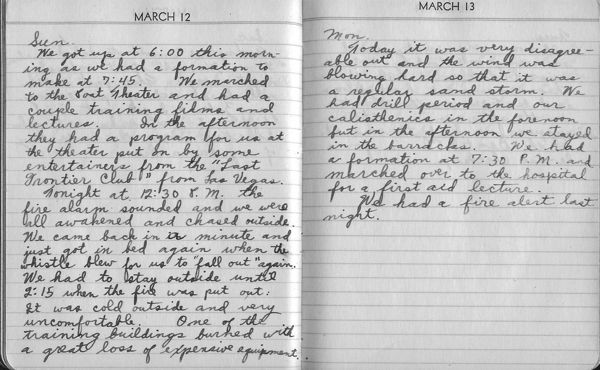 MARCH 12
Sun.
We got up at 6:00 this morn-
ing as we had a formation to
make at 7:45. We marched
to the Post Theater and had a
couple training films and
lectures. In the afternoon
they had a program for us at
the theater put on by some
entertainers from the "Last
Frontier Club" from Las Vegas.
Tonight at 12:30 P.M. the
fire alarm sounded and we were
all awakened and chased outside.
We came back in minute and
just got in bed again when the
whistle blew for us to "fall out" again.
We had to stay outside until
2:15 when the fire was put out.
It was cold outside and very
uncomfortable. One of the
training buildings burned with
a great loss of expensive equipment.
MARCH 13
Mon.
Today it was very disagree-
able out and the wind was
blowing hard so that it was
a regular sand storm. We
had drill period and our
calisthenics in the forenoon
but in the afternoon we stayed
in the barracks. We had
a formation at 7:30 P.M. and
marched over to the hospital
for a first aid lecture.
We had a fire alert last
night.